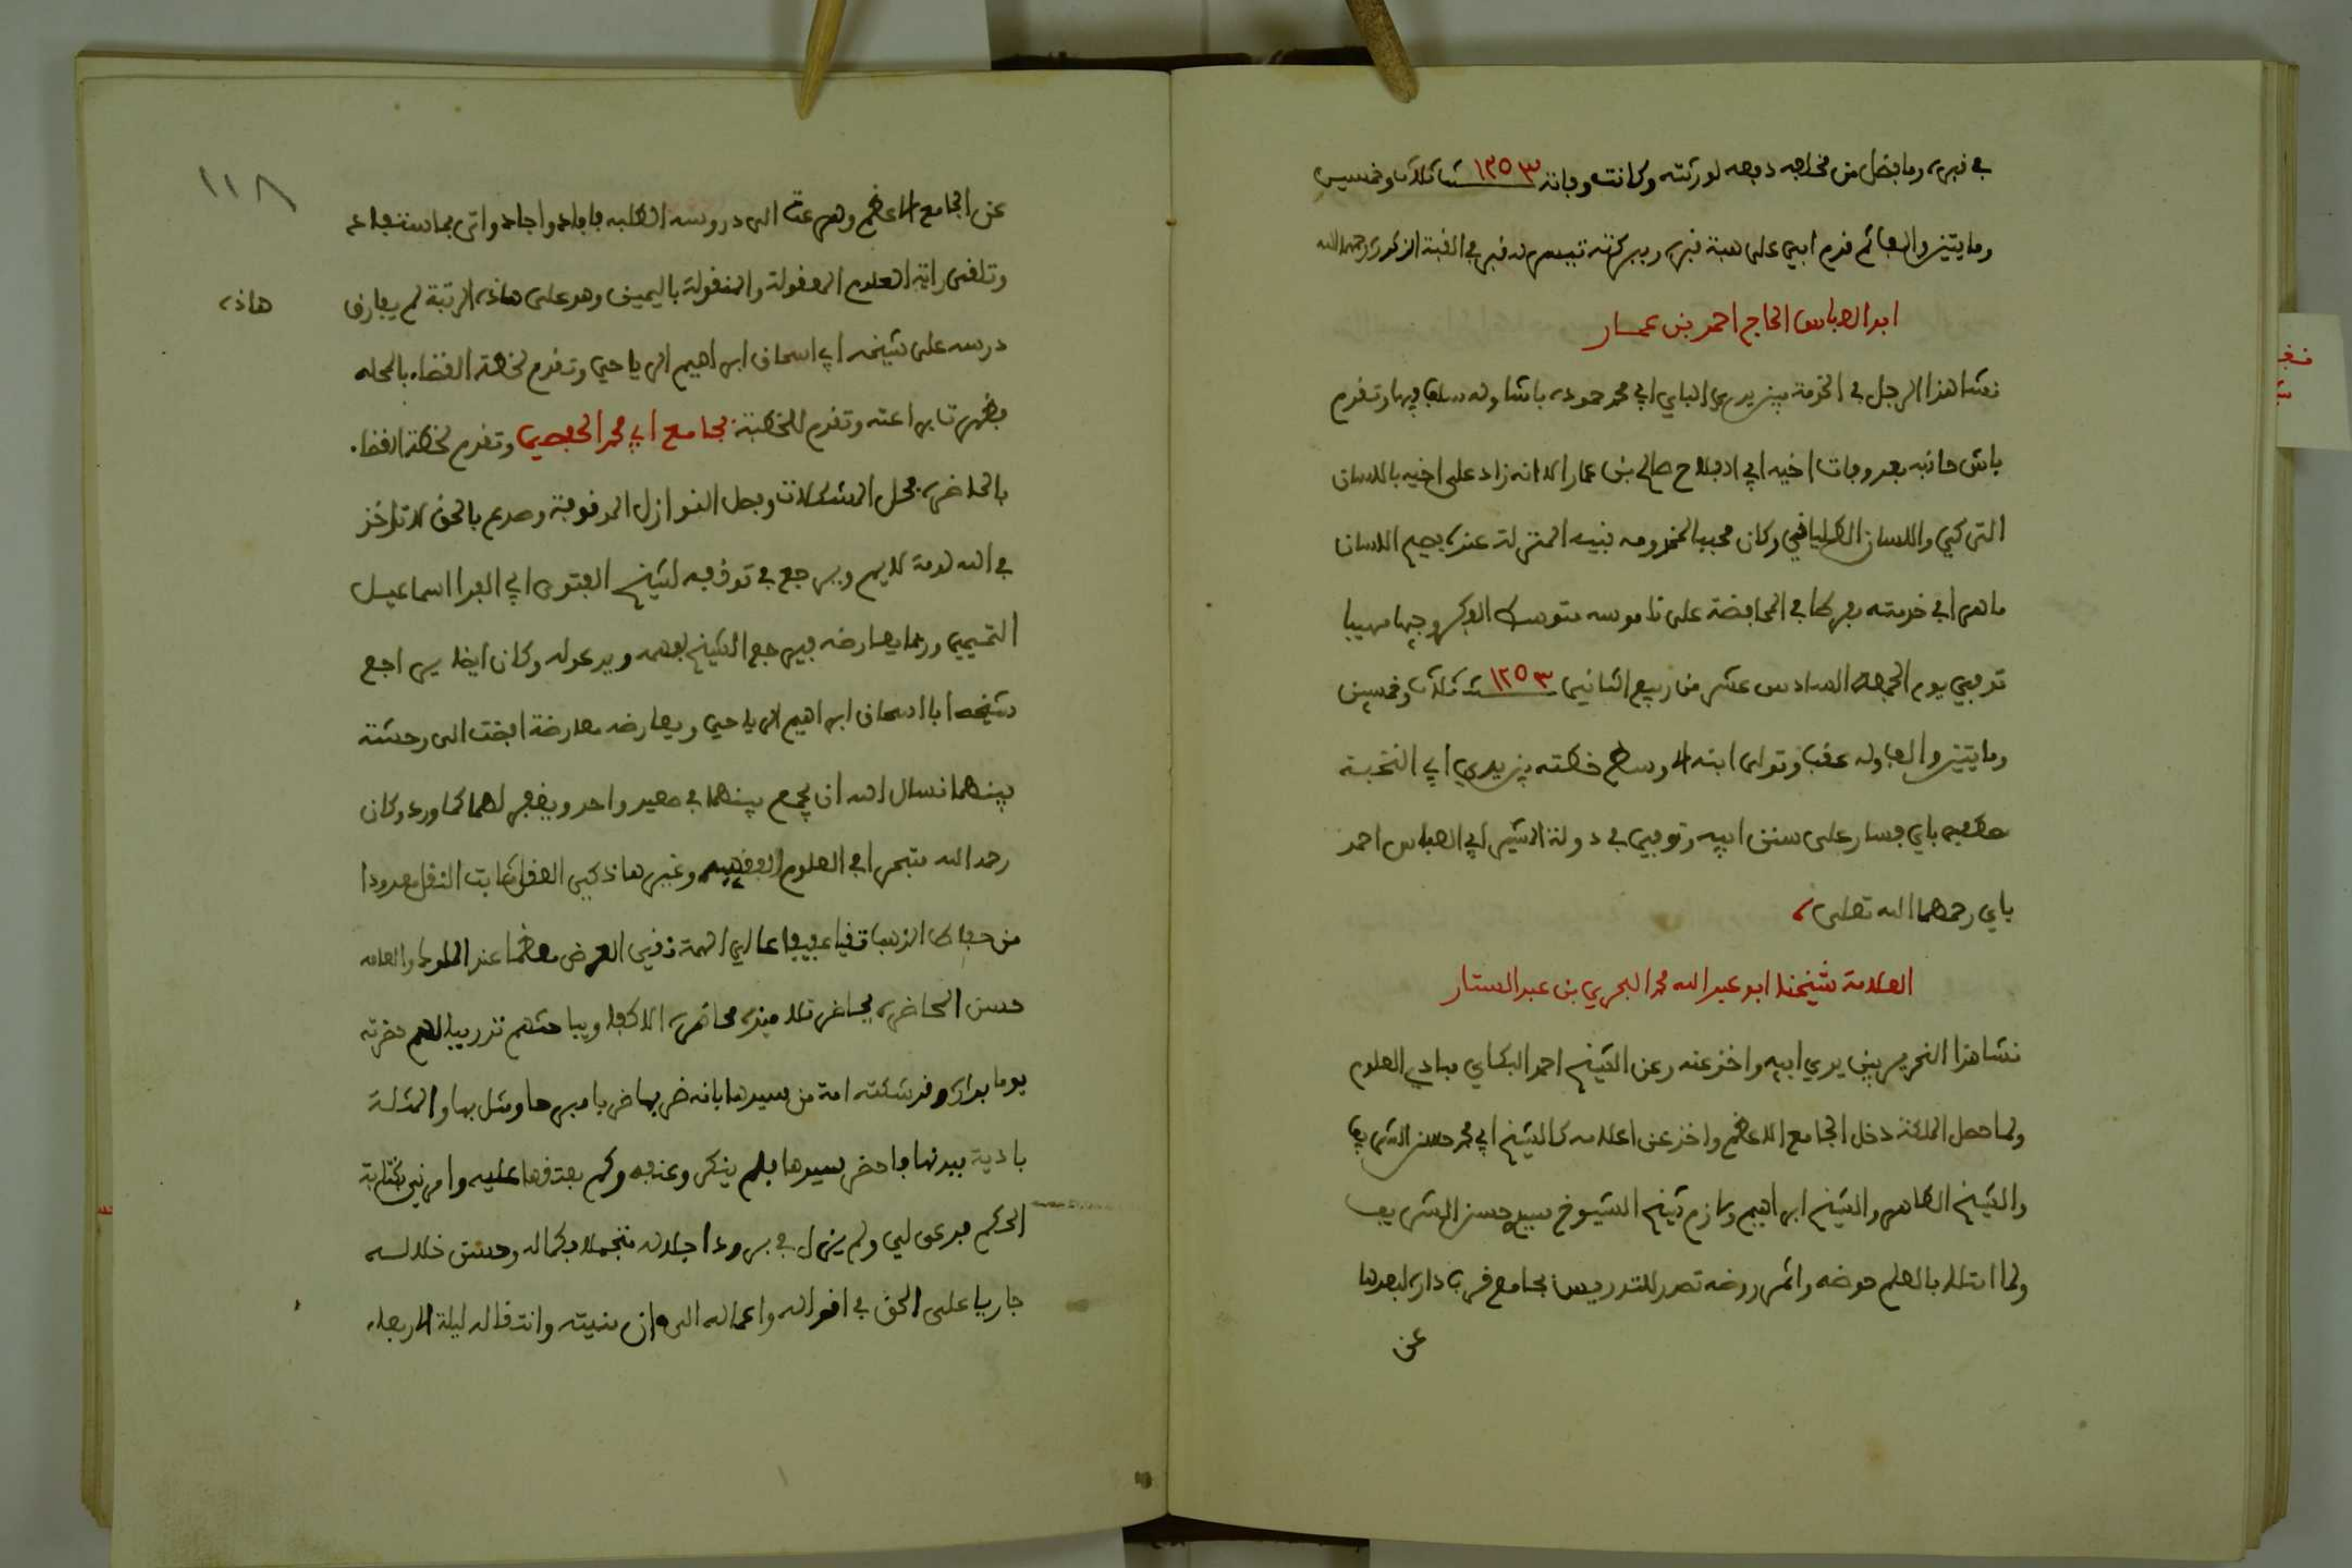 في قبره وما فضل من مخلفه دفعه لورثته وكانت وفاته سنة ١٢٥٣ ثلاث وخمسين
ومايتين والف قدم ابني على هبة قبره وبيركته تيسر له قبر في القبة المذكورة رحمه الله
ابو العباس الحاج احمد بن عمار
نشا هذا الرجل في الخدمة بين يدي الباي ابي محمد حموده باشا وله سابق فيها وتقدم
باش حانبه بعد وفات اخيه ابي الفلاح صالح بن عمار الا انه زاد على اخيه باللسان
التركي واللسان الطلياني وكان محببا لمخدومه نبيه المنزلة عنده فصيح اللسان
ماهرا في خدمته مفرطا في المحافظة على ناموسه متوسط الفكر وجيها مهيبا
توفي يوم الجمعة السادس عشر من ربيع الثاني سنة ١٢٥٣ ثلاث وخمسين
ومايتين والف وله عقب وتولى ابنه الاوسط خطته بين يدي ابي النخبة
مصطفى باي فسار على سنن ابيه وتوفي في دولة المشير ابي العباس احمد
باي رحمهما الله تعلى
العلامة شيخنا ابو عبد الله محمد البحري بن عبد الستار
نشا هذا النحرير بين يدي ابيه واخذ عنه وعن الشيخ احمد البكاي مبادي العلوم
ولما حصل الملكة دخل الجامع الاعظم واخذ عن اعلامه كالشيخ ابي محمد حسن الشريف
والشيخ الطاهر والشيخ ابراهيم ولازم شيخ الشيوخ سيدي حسن الشريف
ولما امتلا بالعلم حوضه واثمر روضه تصدر للتدريس بجامع قرب داره لبعدها
عن
١١٨
عن الجامع الاعظم وهرعت الى دروسه الطلبه فافاد واجاد واتى بما استفاد
وتلقى راية العلوم المعقولة والمنقولة باليمين وهو على هاذه الرتبة لم يفارق
هاذه
درسه على شيخه ابي اسحاق ابراهيم الرياحي وتقدم لخطة القضاء بالمحله
فظهرت براعته وتقدم للخطبة بجامع ابي محمد الحفصي وتقدم لخطة القضاء
بالحاضره فحل المشكلات وفصل النوازل الموقوفة وصدع بالحق لا تاخذ
في الله لومة لايم ويرجع في توقفه لشيخ الفتوى ابي الفدا اسماعيل
التميمي وربما يعارضه فيرجع الشيخ لفهمه ويدعو له وكان ايضا يراجع
شيخه ابا اسحاق ابراهيم الرياحي ويعارضه معارضة افضت الى وحشة
بينهما نسال الله ان يجمع بينهما في صعيد واحد ويغفر لهما كما ورد وكان
رحمه الله متبحرا في العلوم الفقهيه وغيرها ذكي العقل ثابت النقل معدودا
من حفاظ المذهب تقيا عفيفا عالي الهمة نقي العرض معظما عند الملوك والعامه
حسن المحاضرة يحاضر تلاميذه محاضرة الاكفاء ويباحثهم تدريبا لهم حضرته
يوما بداره وقد شكته امة من سيدها بانه ضربها ضربا مبرحا ومثل بها والمثلة
بادية ببدنها فاحضر سيدها فلم ينكر وعنفه وحكم بعتقها عليه وامرني بكتابة
الحكم فدعى لي ولم يزل في برود اجلاله متجملا بكماله وحسن خلاله
جاريا على الحق في اقواله واعماله الى وان منيته وانتقاله ليلة الاربعاء